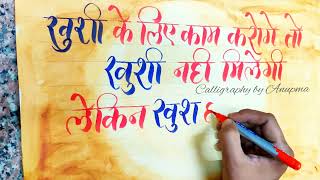 खुशी के लिए काम करोगे तो
खुशी नही मिलेगी
Calligraphy by Anupma
लेकिन खुश